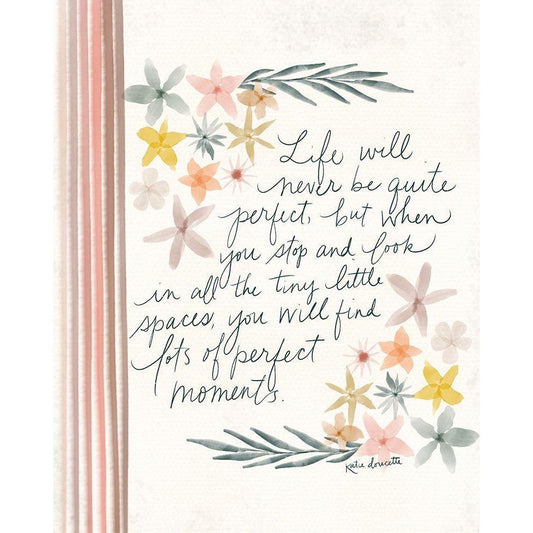 Life will
never be quite
perfect, but when
you stop and look
in all the tiny little
spaces, you will find
lots of perfect
moments.
Katie doucette